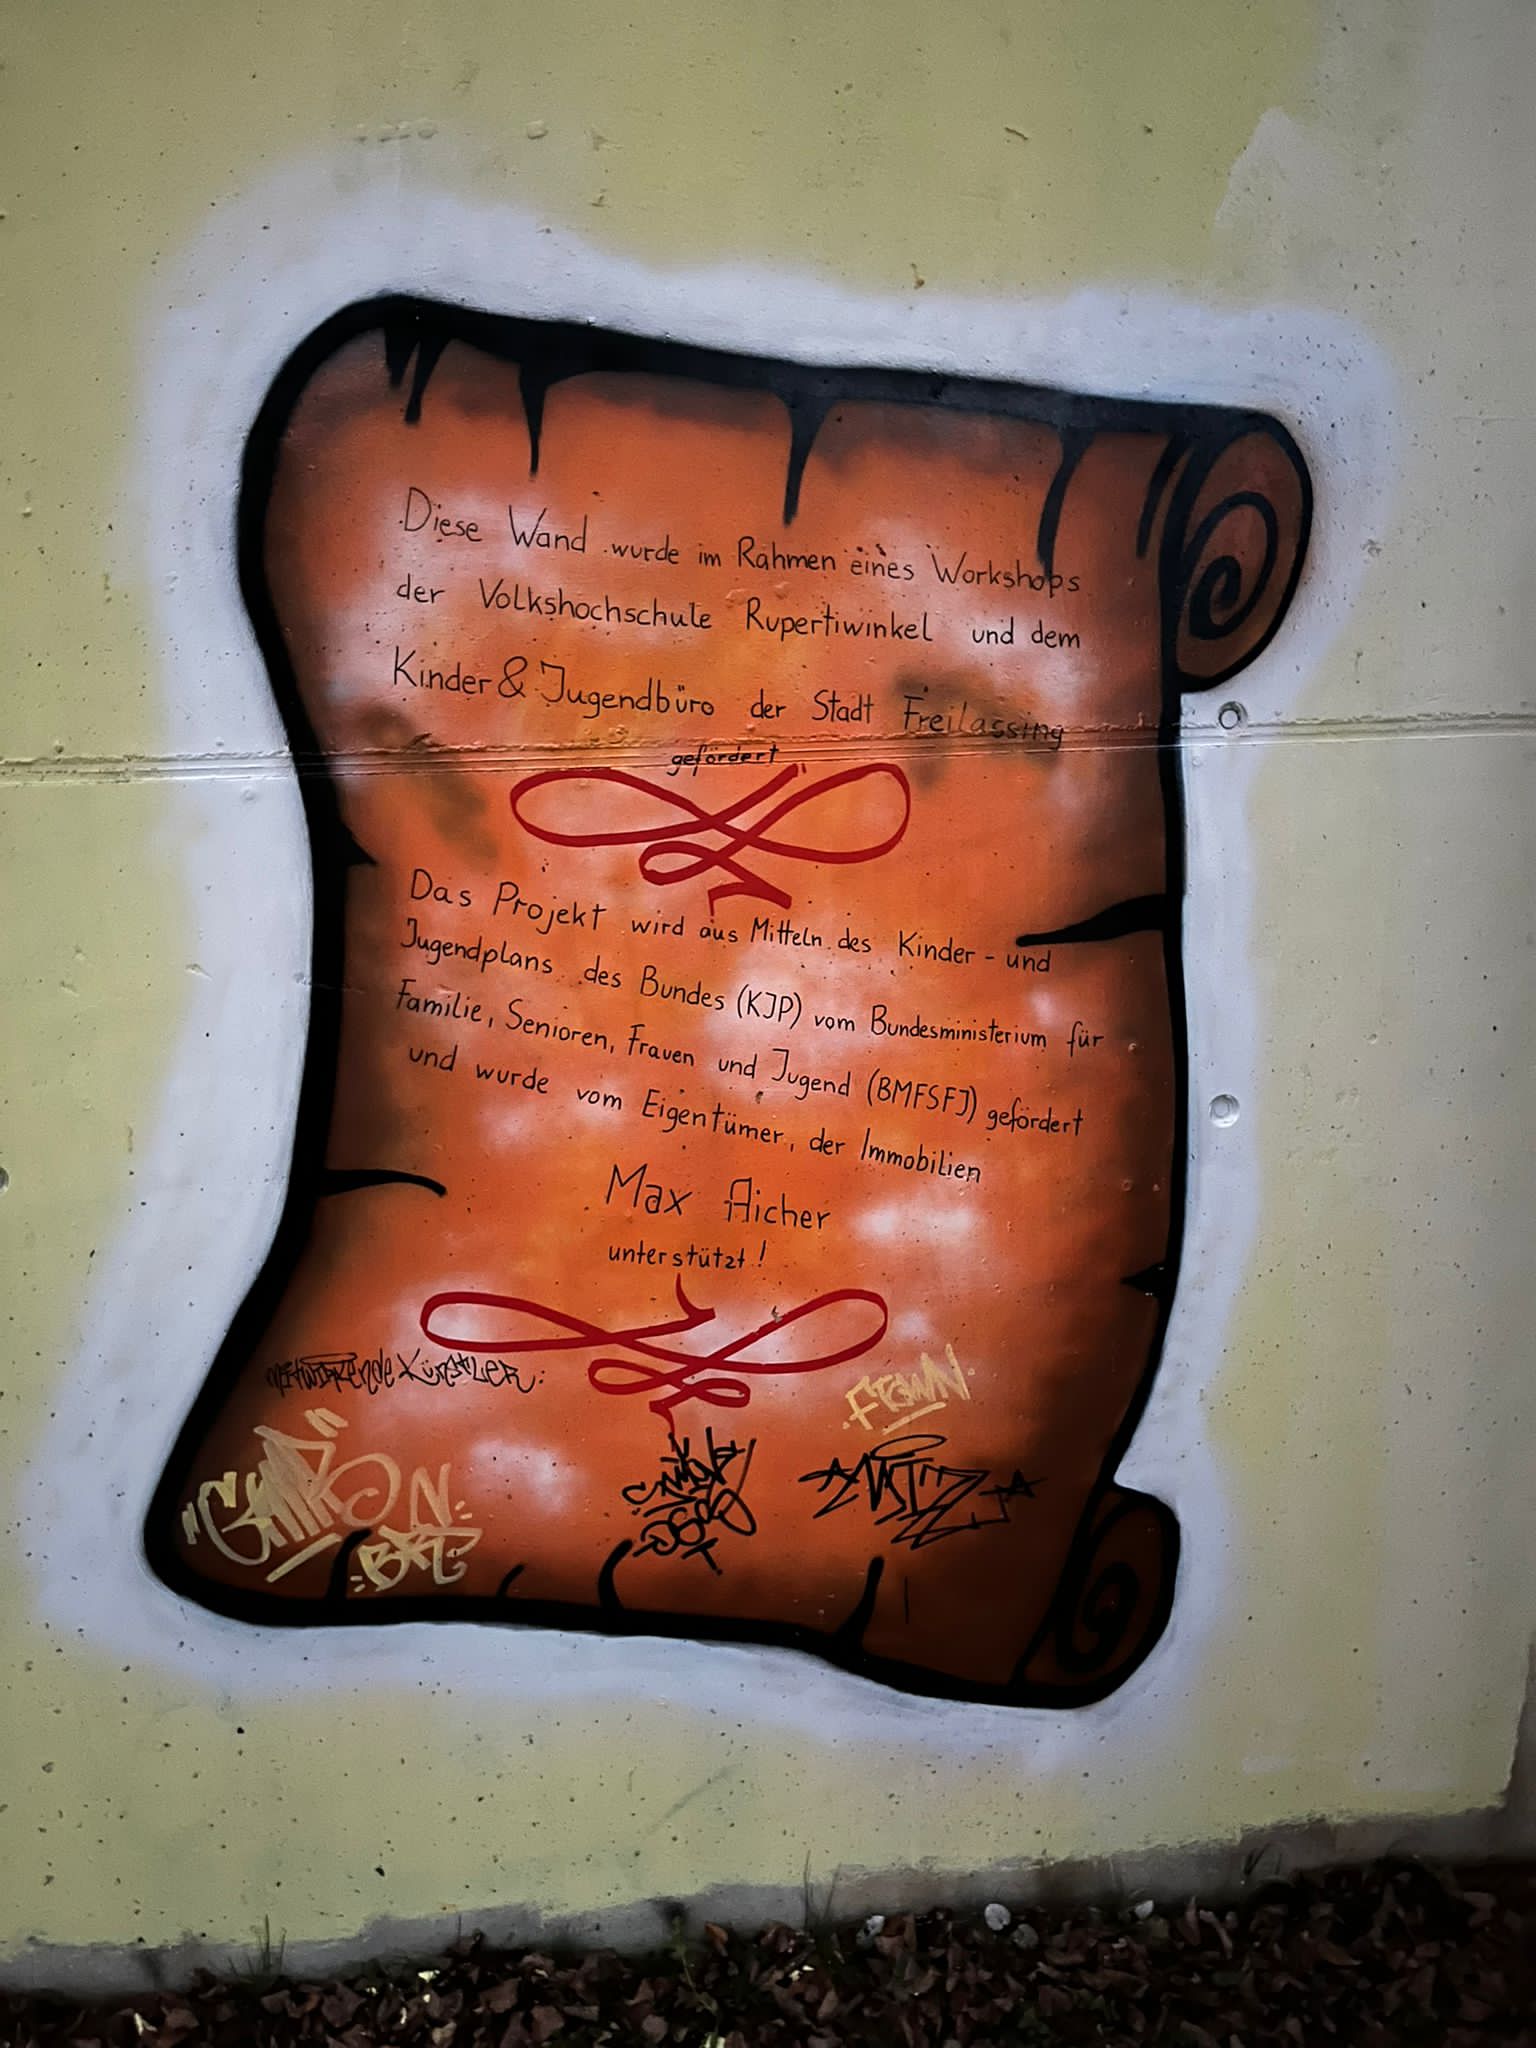 Diese Wand wurde im Rahmen eines Workshops
der Volkshochschule Rupertiwinkel und dem
Kinder & Jugendbüro der Stadt Freilassing
gefördert
Das Projekt wird aus Mitteln des Kinder- und
Jugendplans des Bundes (KJP) vom Bundesministerium für
Familie, Senioren, Frauen und Jugend (BMFSFJ) gefördert
und wurde vom Eigentümer, der Immobilien
Max Aicher
unterstützt!
mitwirkende Künstler: